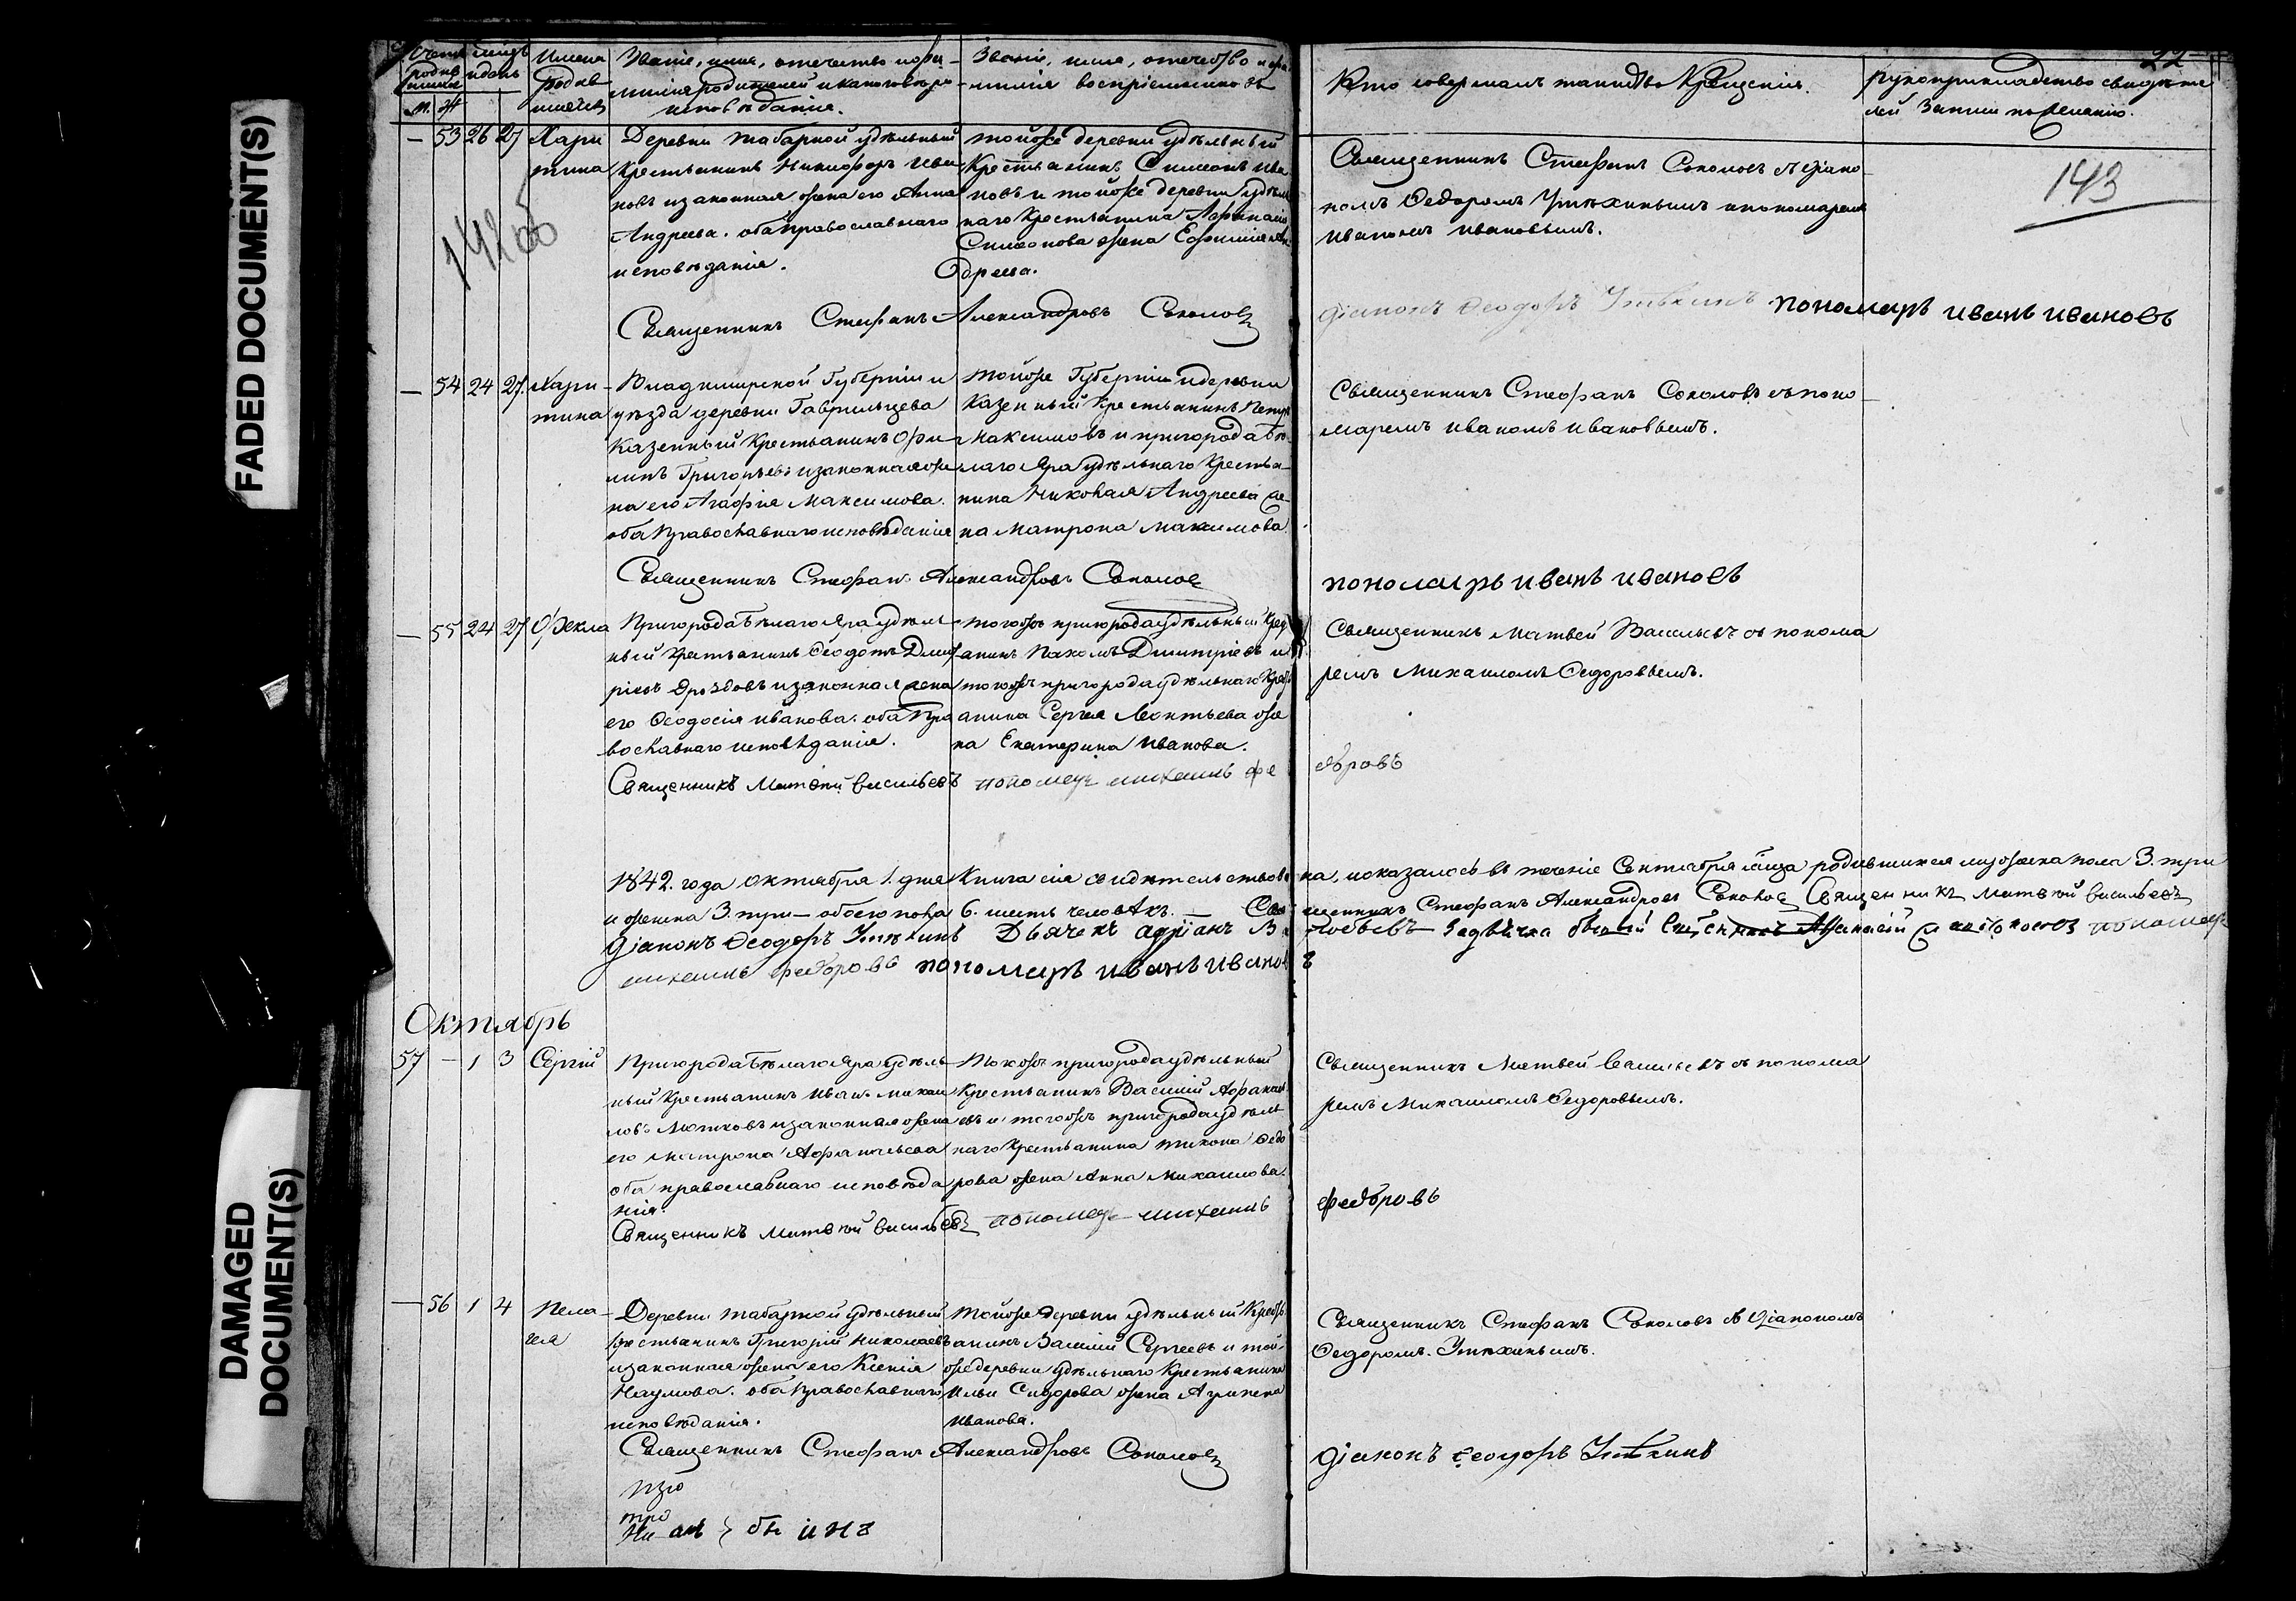 FADED DOCUMENT(S)
DAMAGED
DOCUMENT(S)
22
Имена
родив
шихся
Званіе, имя, отечество и фа-
милія родителей и какого веро
исповѣданія.
Званіе, имя, отечество и фа
милія воспріемниковъ
Кто совершалъ таинство Крещенія.
рукоприкладство свидѣте
лей записи по желанію.
м. ж
— 53 26 27 Хари
тина
142 об
143
Деревни Табарной удѣльный
Крестьянинъ Никифоръ Ива
новъ и законная жена его Анна
Андреева. оба православнаго
исповѣданія.
тойже деревни удѣльный
Крестьянинъ Симеонъ Ива
новъ и тойже деревни удѣль
наго Крестьянина Афанасія
Симеонова жена Евфимія Ан
дреева.
Священникъ Стефанъ Соколовъ съ діако
номъ Федоромъ Утѣхинымъ и пономаремъ
Иваномъ Ивановымъ.
Священникъ Стефанъ Александровъ Соколовъ
діаконъ Феодоръ Утѣхинъ пономаръ иванъ ивановъ
— 54 24 27. Хари-
тина
Владимирской Губерніи и
уѣзда деревни Гаврильцева
Казенный Крестьянинъ Фи-
липъ Григорьевъ и законная же
на его Агафія Максимова.
оба Православнаго исповѣданія
тойже Губерніи и деревни
Казенный Крестьянинъ Петръ
Максимовъ и пригорода Бѣ-
лаго Яра удѣльнаго Крестья-
нина Николая Андреева же-
на Матрона Максимова.
Священникъ Стефанъ Соколовъ съ поно-
маремъ Иваномъ Ивановымъ.
Священникъ Стефанъ Александровъ Соколовъ
пономаръ иванъ ивановъ
— 55 24 27 Фекла
Пригорода Бѣлаго Яра удѣль-
ный Крестьянинъ Феодотъ Дмит
ріевъ Дроздовъ и законная жена
его Феодосія Иванова. оба Пра
вославнаго исповѣданія.
тогожъ пригорода удѣльный Крест
янинъ Пахомъ Димитріевъ и
тогожъ пригорода удѣльнаго Крест
янина Сергея Леонтьева же
на Екатерина Иванова.
Священникъ Матвей Васильевъ съ понома
ремъ Михаиломъ Федоровымъ.
Священникъ Матвѣй Васильевъ пономаръ михаилъ фе
доровъ
1842. года октября 1. дня Книга сія свидѣтельствова
на, и показалось въ теченіе Сентября мѣсяца родившихся мужеска пола 3. три
и женска 3. три — обоего пола 6. шесть человѣкъ. — Свя
щенникъ Стефанъ Александровъ Соколовъ Священникъ Матвѣй Васильевъ
діаконъ Феодоръ Утѣхинъ Дьячекъ адріанъ
пономаръ
михаилъ федоровъ пономаръ иванъ ивановъ
Октябрь
57 — 1 3 Сергій
Пригорода Бѣлаго Яра удѣль-
ный Крестьянинъ Иванъ Михаи
ловъ Мотковъ и законная жена
его Матрона Афанасьева
оба православнаго исповѣда
нія.
Тогожъ пригорода удѣльный
Крестьянинъ Василій Афанась
евъ и тогожъ пригорода удѣль
наго Крестьянина Тихона Федо
рова жена Анна Михаилова.
Священникъ Матвей Васильевъ съ понома
ремъ Михаиломъ Федоровымъ.
Священникъ Матвѣй Васильевъ пономаръ михаилъ
федоровъ
— 56 1 4 Пела-
гея
Деревни Табарной удѣльный
Крестьянинъ Григорій Николаевъ
и законная жена его Ксенія
Наумова. оба Православнаго
исповѣданія.
Тойже деревни удѣльный Кресть
янинъ Василій Сергеевъ и той-
же деревни удѣльнаго Крестьянина
Ильи Сидорова жена Агрипена
Иванова.
Священникъ Стефанъ Соколовъ съ діакономъ
Федоромъ Утѣхинымъ.
Священникъ Стефанъ Александровъ Соколовъ
діаконъ Феодоръ Утѣхинъ